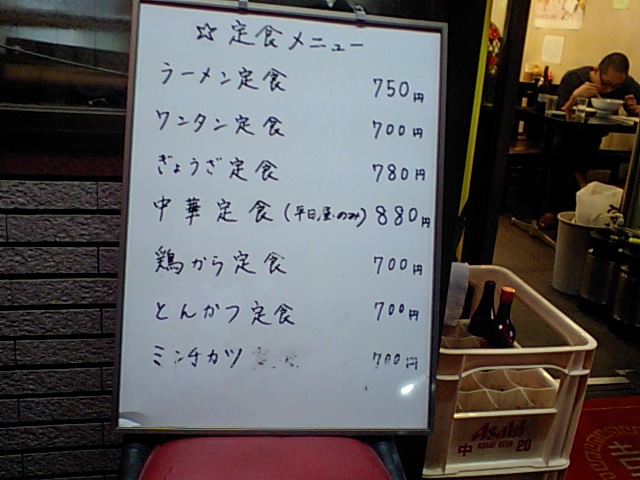 ☆定食メニュー
ラーメン定食 750円
ワンタン定食 700円
ぎょうざ定食 780円
中華定食(平日,昼のみ) 880円
鶏から定食 700円
とんかつ定食 700円
ミンチカツ 700円
Asahi
中 ASAHI BEER 20